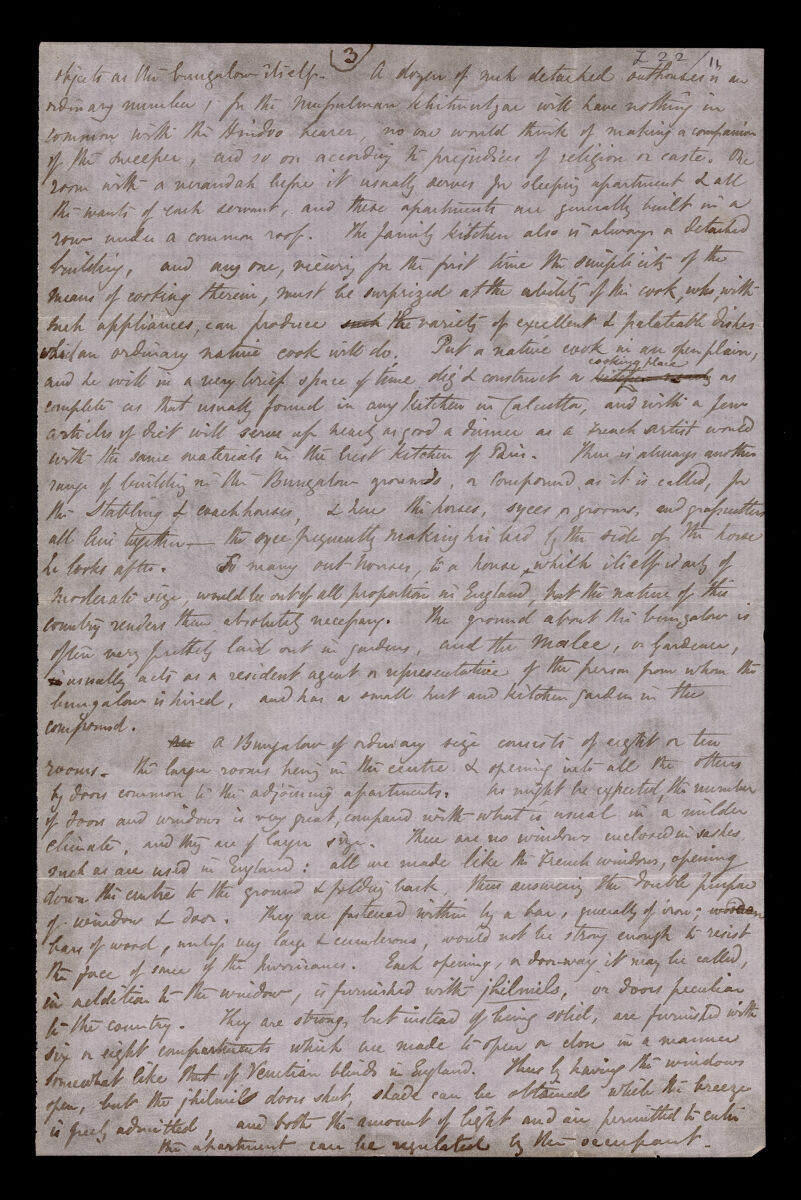 3
objects as the bungalow itself. A dozen of such detached outhouses is an
ordinary number; for the Mussulman Khitmutgar will have nothing in
common with the Hindoo bearer, no one would think of making a companion
of the sweeper, and so on according to prejudices of religion or caste. One
room with a verandah before it usually serves for sleeping apartment & all
the wants of each servant, and these apartments are generally built in a
row under a common roof. The family kitchen also is always a detached
building, and any one, viewing for the first time the simplicity of the
means of cooking therein, must be surprized at the ability of the cook, who, with
such appliances, can produce such the variety of excellent & palateable dishes
which an ordinary native cook will do. Put a native cook in an open plain,
cooking place
and he will in a very brief space of time dig & construct a as
complete as that usually found in any kitchen in Calcutta, and with a few
articles of diet will serve up nearly as good a dinner as a French artist would
with the same materials in the best kitchen of Paris. There is always another
range of building in the Bungalow grounds, or Compound as it is called, for
the Stabling & coachhouses, & here the horses, syces or grooms, and grasscutters
all live together — the syce frequently making his bed by the side of the horse
he looks after. So many out-houses, to a house, which itself is only of
moderate size, would be out of all proportion in England, but the nature of this
country renders them absolutely necessary. The ground about the bungalow is
often very prettily laid out in gardens, and the Malee, or Gardener,
usually acts as a resident agent or representative of the person from whom the
bungalow is hired, and has a small hut and kitchen garden in the
compound.
A Bungalow of ordinary size consists of eight or ten
rooms – the larger rooms being in the centre & opening into all the others
by doors common to the adjoining apartments. As might be expected, the number
of doors and windows is very great, compared with what is usual in a milder
climate, and they are of larger size. There are no windows enclosed in sashes
such as are used in England: all are made like the French windows, opening
down the centre to the ground & folding back, thus answering the double purpose
of window & door. They are fastened within by a bar, generally of iron; wooden
bars of wood, unless very large & cumbrous, would not be strong enough to resist
the force of some of the hurricanes. Each opening, or door-way it may be called,
in addition to the window, is furnished with jhilmils, or doors peculiar
to the country. They are strong, but instead of being solid, are furnished with
six or eight compartments which are made to open or close in a manner
somewhat like that of Venetian blinds in England. Thus by having the windows
open, but the jhilmil doors shut, shade can be obtained while the breeze
is freely admitted, and both the amount of light and air permitted to enter
the apartment can be regulated by the occupant.